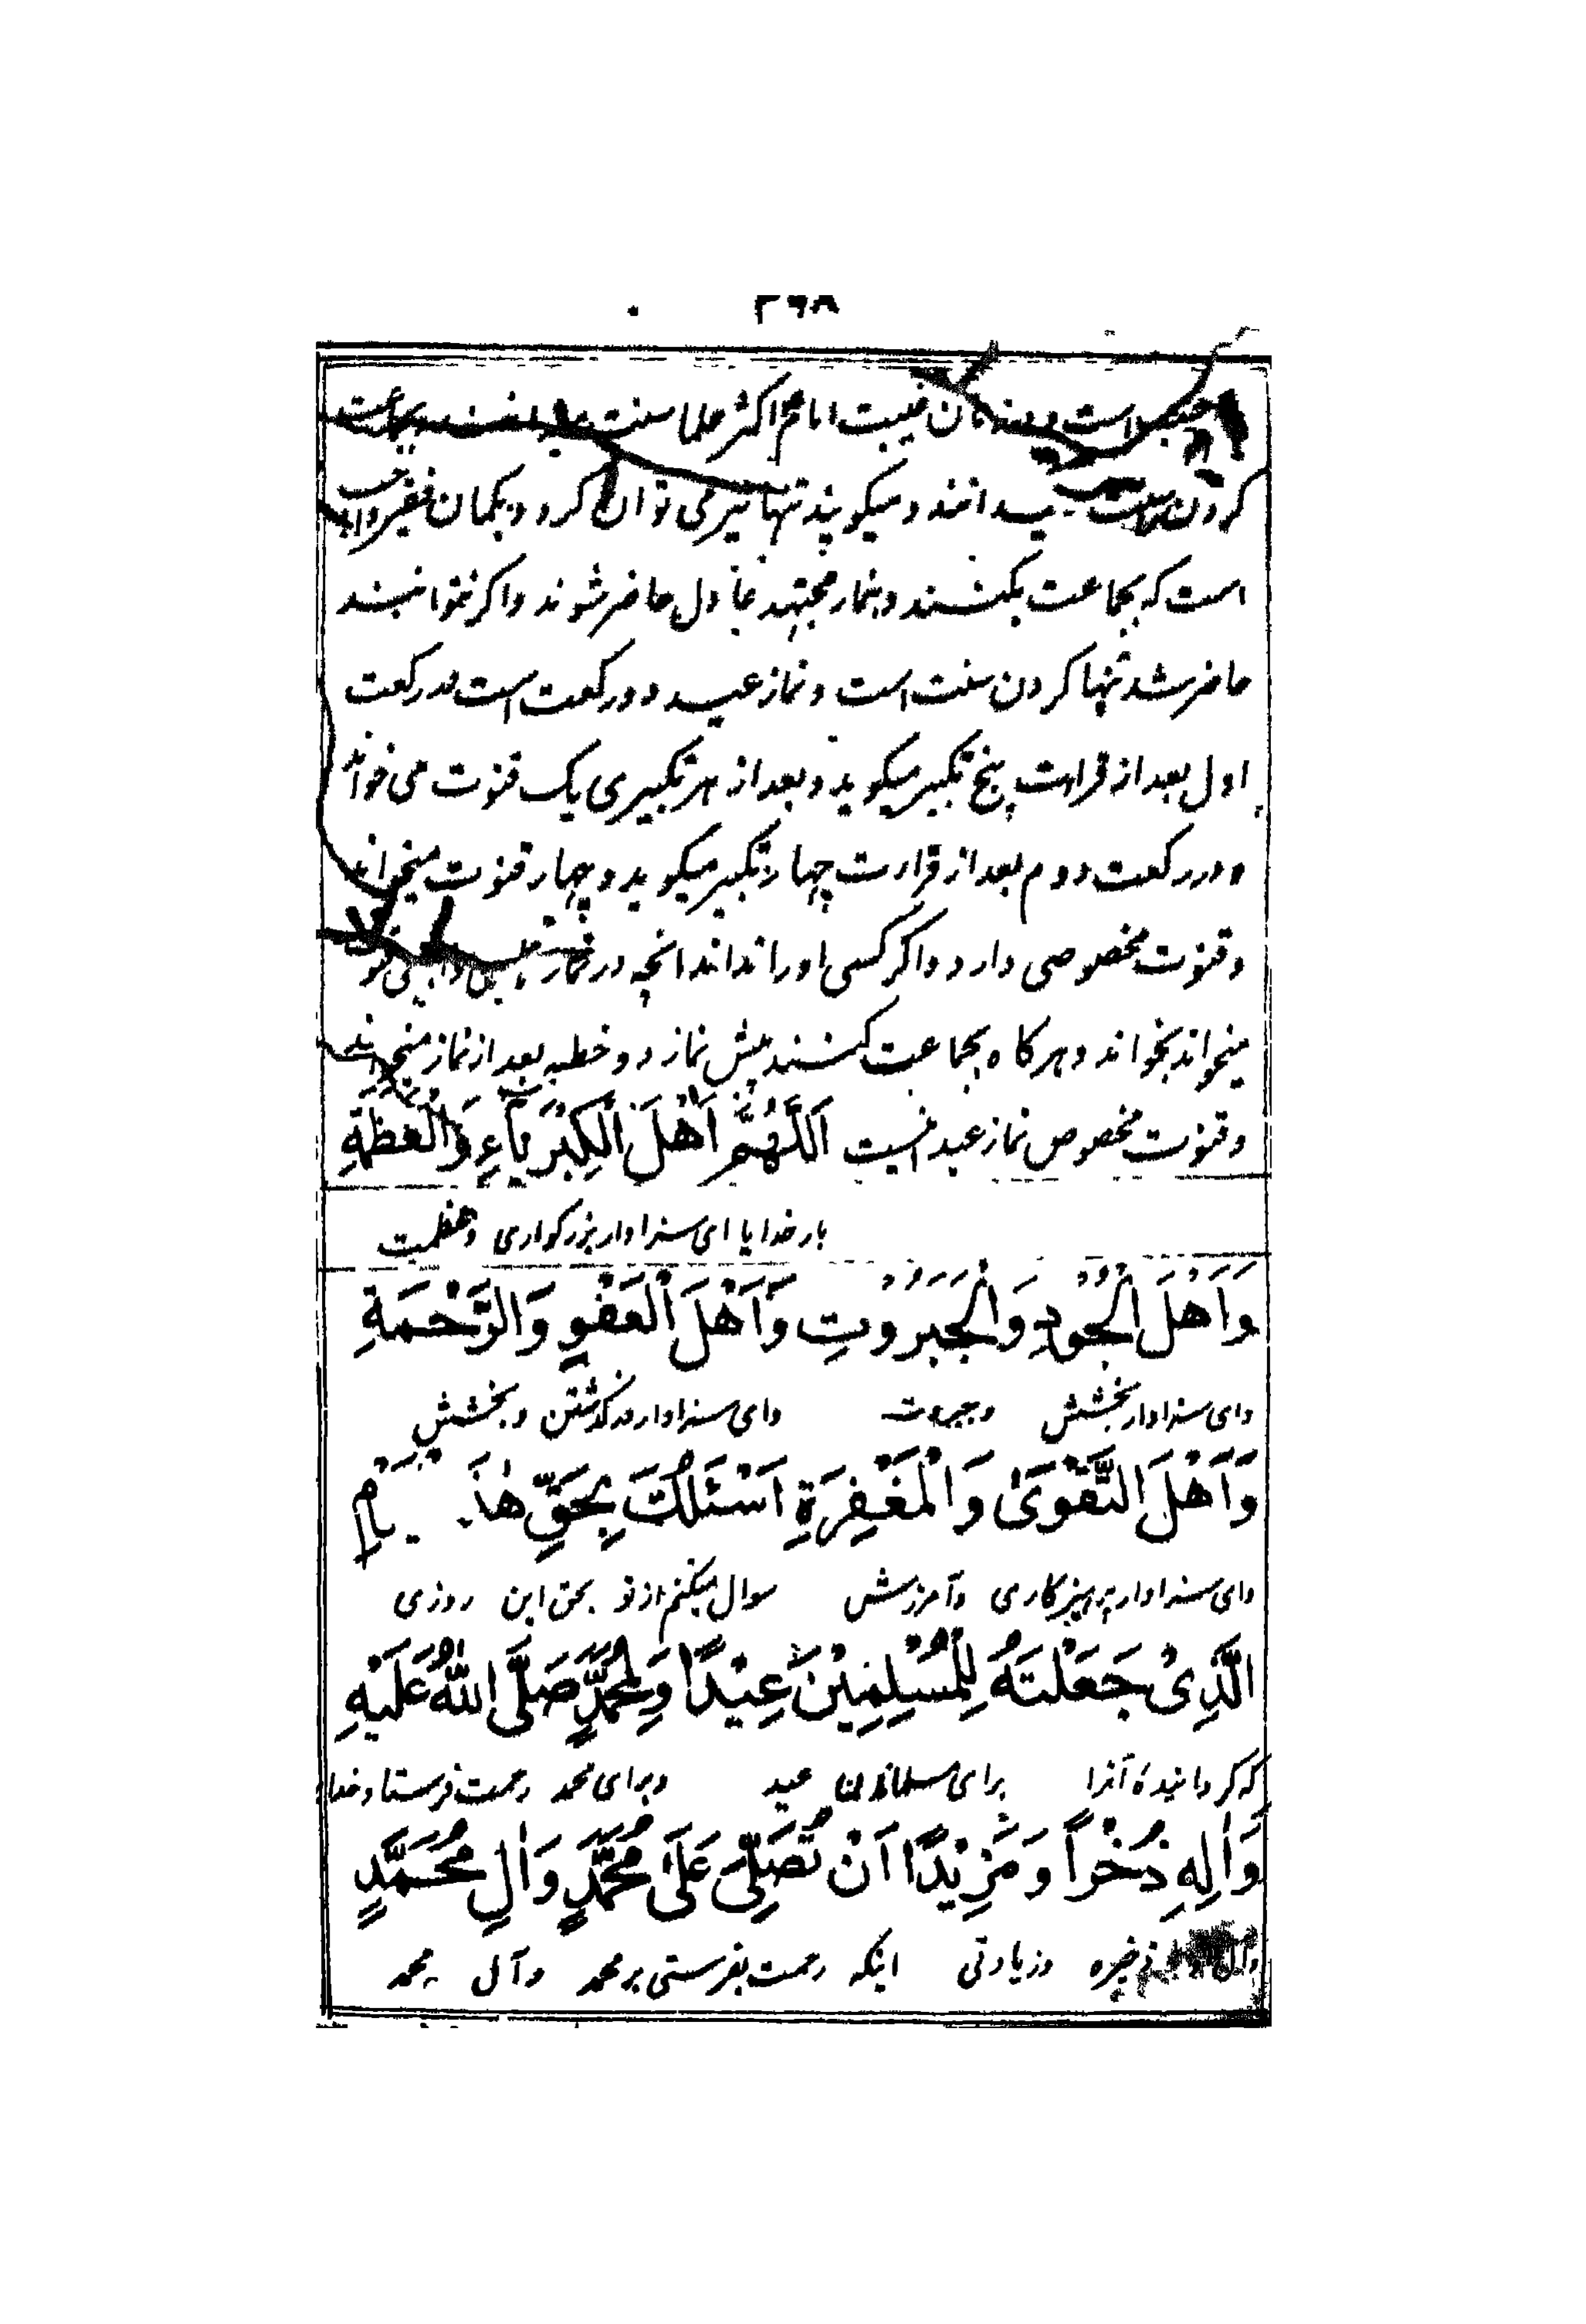 ۲۶۸
است و در زمان غیبت امام اکثر علما سنت میدانند و بجماعت
کردن سنت میدانند و میگویند تنها نیز می توان کرد و بگمان فقیر واجب
است که بجماعت بکنند و بنماز مجتهد عادل حاضر شوند و اگر نتوانند
حاضر شد تنها کردن سنت است و نماز عید دو رکعت است در رکعت
اول بعد از قراءت پنج تکبیر میگوید و بعد از هر تکبیری یک قنوت می خواند
و در رکعت دوم بعد از قراءت چهار تکبیر میگوید و چهار قنوت میخواند
و قنوت مخصوصی دارد و اگر کسی او را نداند انچه در نماز
میخواند بخواند و هرگاه بجماعت کنند پیش نماز دو خطبه بعد از نماز میخواند
و قنوت مخصوص نماز عید اینست اَللّٰهُمَّ اَهْلَ الْكِبْرِيَاءِ وَالْعَظَمَةِ
بار خدایا ای سزاوار بزرگواری و عظمت
وَاَهْلَ الْجُوْدِ وَالْجَبَرُوْتِ وَاَهْلَ الْعَفْوِ وَالرَّحْمَةِ
وای سزاوار بخشش و جبروت وای سزاوار درگذشتن و بخشش
وَاَهْلَ التَّقْوَىٰ وَالْمَغْفِرَةِ اَسْئَلُكَ بِحَقِّ هٰذَا
وای سزاوار پرهیزکاری و آمرزش سوال میکنم از تو بحق این روزی
الَّذِىْ جَعَلْتَهُ لِلْمُسْلِمِيْنَ عِيْدًا وَلِمُحَمَّدٍ صَلَّى اللّٰهُ عَلَيْهِ
که گردانیدهٔ آنرا برای مسلمانان عید و برای محمد رحمت فرستاد خدا
وَاٰلِهِ ذُخْراً وَمَزِيْدًا اَنْ تُصَلِّىَ عَلىٰ مُحَمَّدٍ وَاٰلِ مُحَمَّدٍ
ذخیره و زیادتی اینکه رحمت بفرستی بر محمد و آل محمد